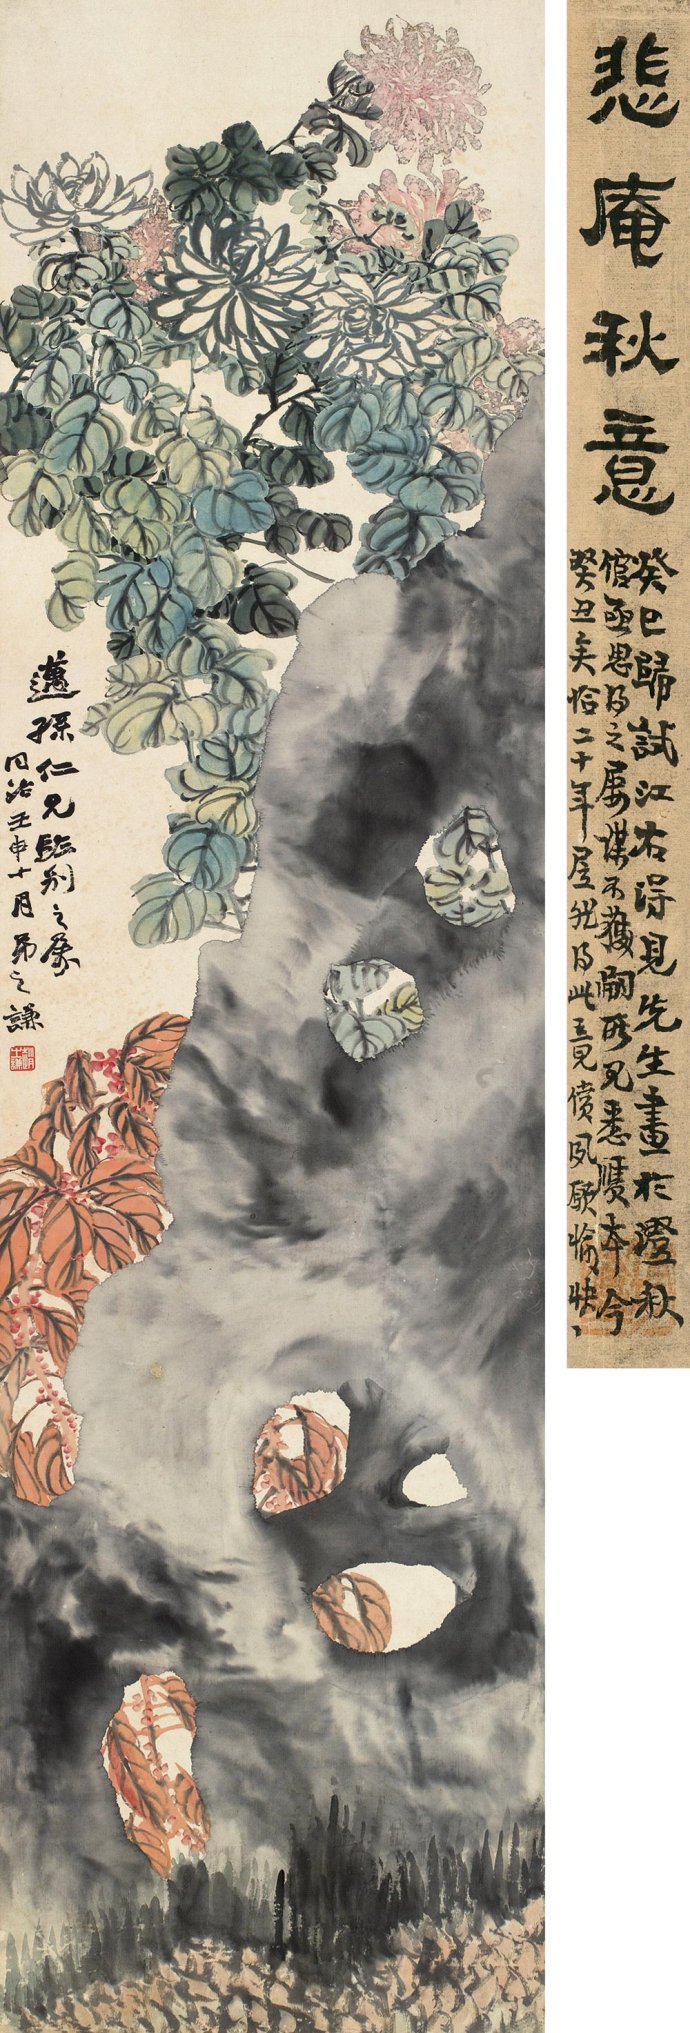 悲庵秋意
癸巳歸試江右得見先生畫於澄秋
館亟思得之屢謀不獲嗣所見悉贋本今
癸丑矣恰二十年居然得此竟償夙願愉〻快〻
邁孫仁兄臨別之屬
同治壬申十月弟之謙